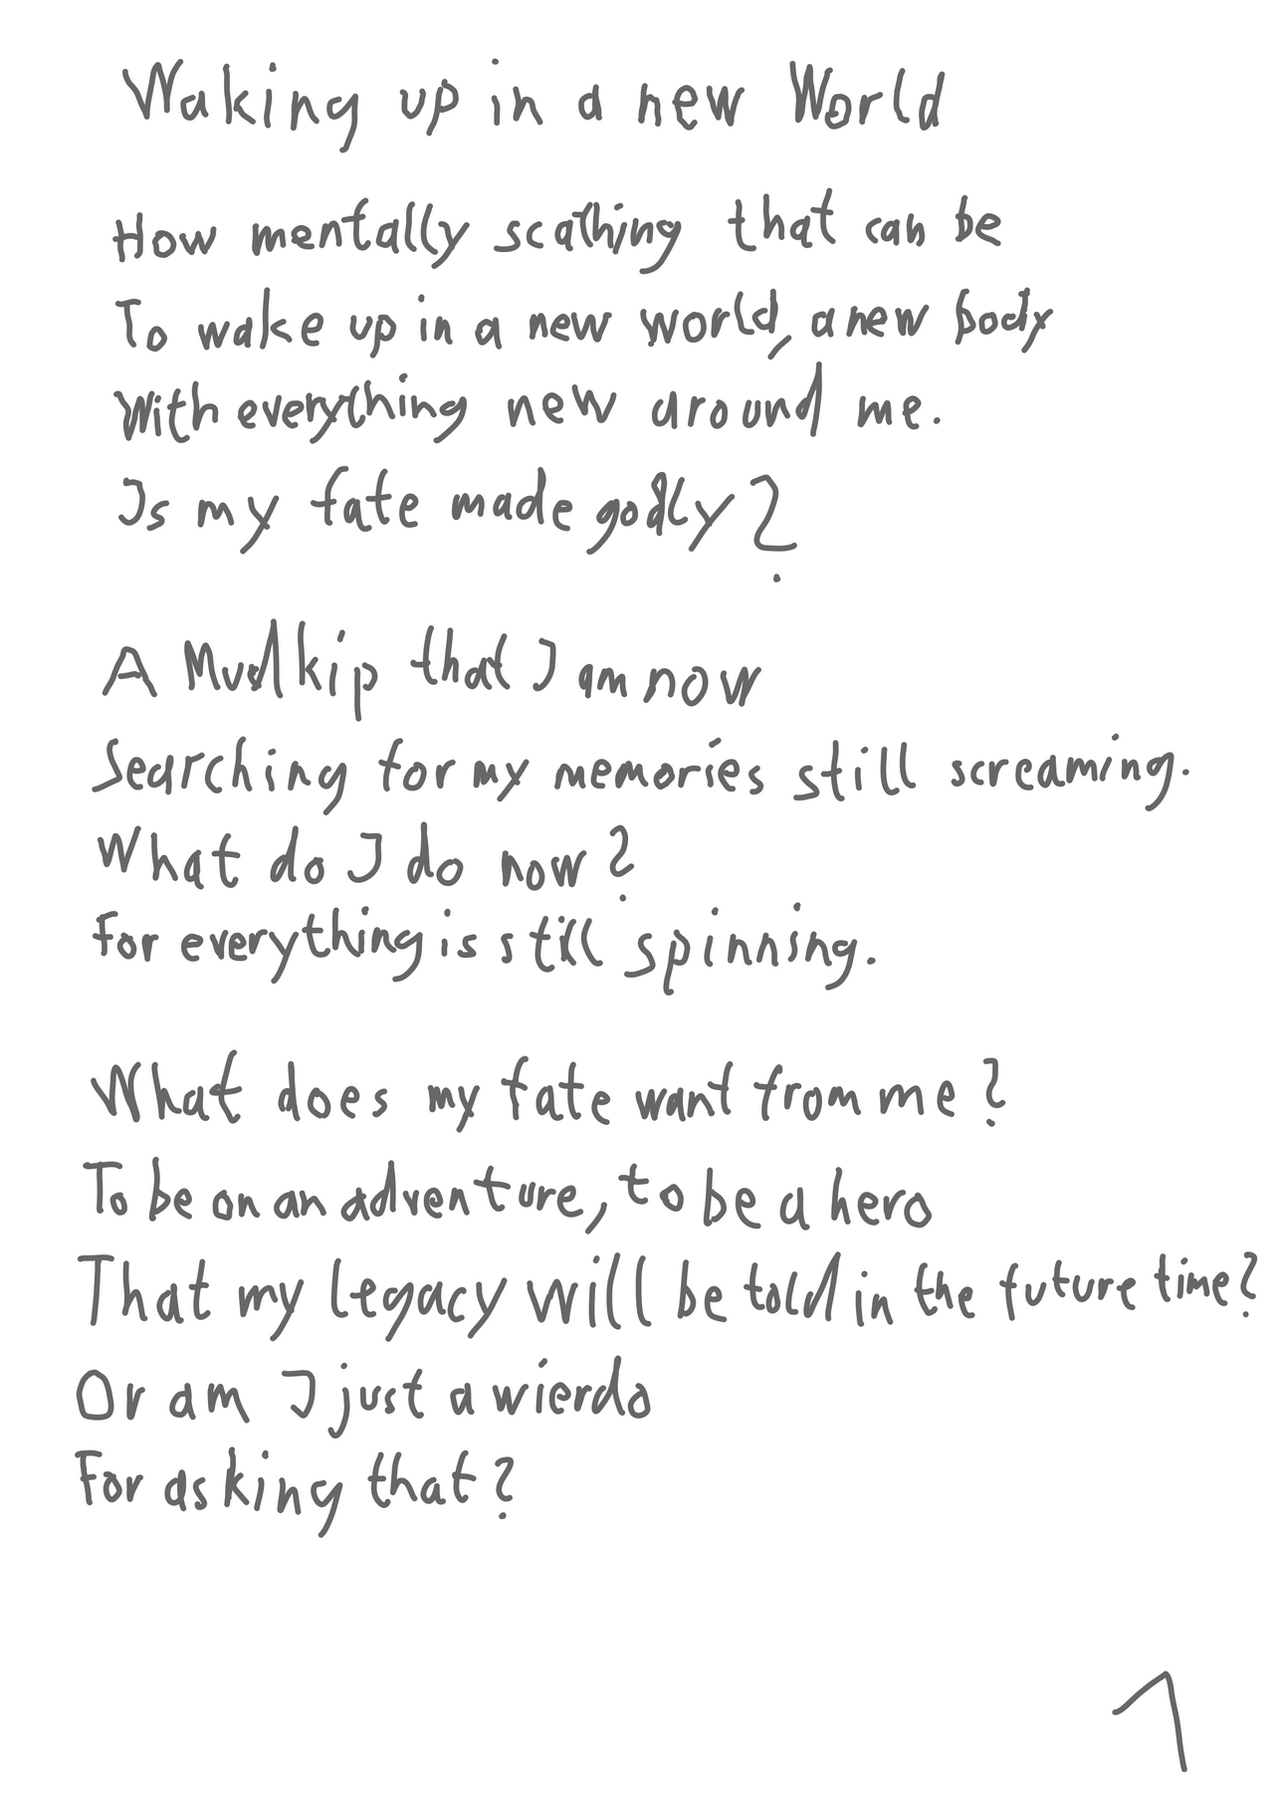 Waking up in a new World
How mentally scathing that can be
To wake up in a new world, a new body
With everything new around me.
Is my fate made godly?
A Mudkip that I am now
Searching for my memories still screaming.
What do I do now?
For everything is still spinning.
What does my fate want from me?
To be on an adventure, to be a hero
That my legacy will be told in the future time?
Or am I just a wierdo
For asking that?
1